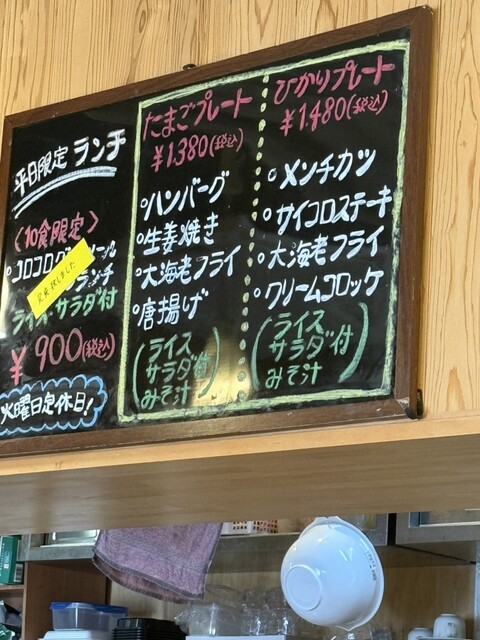 平日限定 ランチ
〈10食限定〉
°コロコログ
ランチ
完売致しました
ライス・サラダ付
¥900(税込)
火曜日定休日!
たまごプレート
¥1.380(税込)
°ハンバーグ
°生姜焼き
°大海老フライ
°唐揚げ
(ライス
サラダ付
みそ汁)
ひかりプレート
¥1.480(税込)
°メンチカツ
°サイコロステーキ
°大海老フライ
°クリームコロッケ
(ライス
サラダ付
みそ汁)